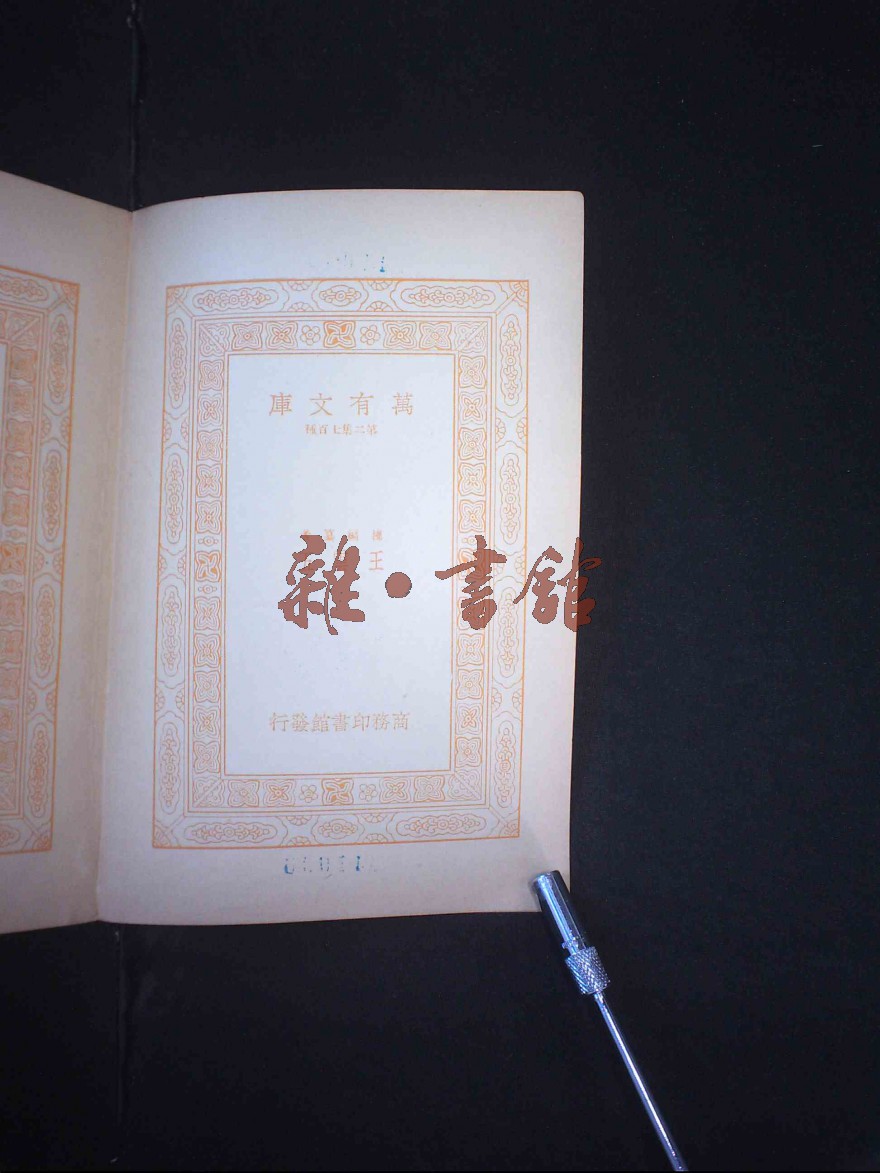 萬有文庫
第二集七百種
編纂
王
雜·書館
商務印書館發行